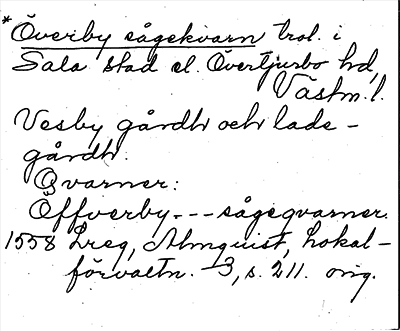 *Överby sågekvarn trol. i
Sala stad el. Övertjurbo hd,
Västm. l.
Vesby gårdh och lade-
gårdh.
Qvarner:
Öffverby --- sågeqvarner.
1558 Lreg, Almquist, Lokal-
förvaltn. 3, s. 211. orig.